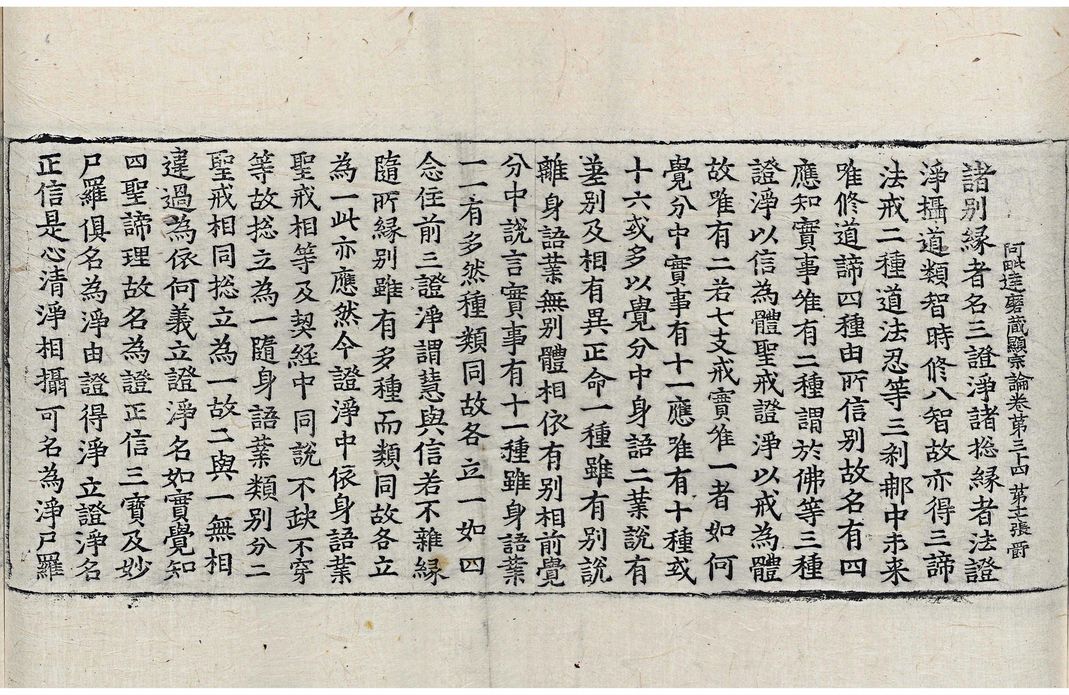 阿毗達磨藏顯宗論卷第三十四 第十二張 爵
諸別緣者名三證淨諸捴緣者法證
淨攝道類智時修八智故亦得三諦
法戒二種道法忍等三刹那中未来
唯修道諦四種由所信別故名有四
應知實事唯有二種謂於佛等三種
證淨以信為體聖戒證淨以戒為體
故唯有二若七支戒實唯一者如何
覺分中實事有十一應唯有十種或
十六或多以覺分中身語二業說有
差別及相有異正命一種雖有別說
離身語業無別體相依有別相前覺
分中說言實事有十一種雖身語業
一一有多然種類同故各立一如四
念住前三證淨謂慧與信若不雜緣
隨所緣別雖有多種而類同故各立
為一此亦應然今證淨中依身語業
聖戒相等及契經中同說不缺不穿
等故捴立為一隨身語業類別分二
聖戒相同捴立為一故二與一無相
違過為依何義立證淨名如實覺知
四聖諦理故名為證正信三寶及妙
尸羅俱名為淨由證得淨立證淨名
正信是心清淨相攝可名為淨尸羅